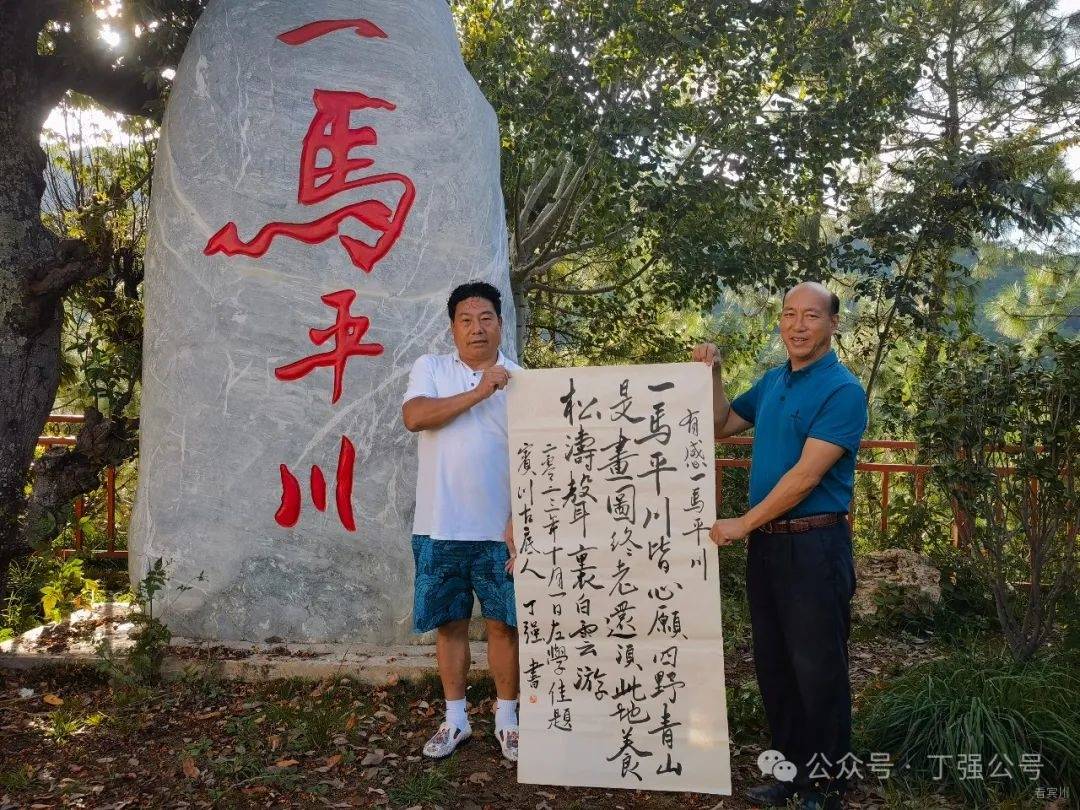 一马平川
有感一馬平川
一馬平川皆心願四野青山
是畫圖終老還須此地養
松濤聲裏白雲游
二零二三年十月一日左學佳題
賓川古底人丁强書
公众号·丁强公号
看宾川